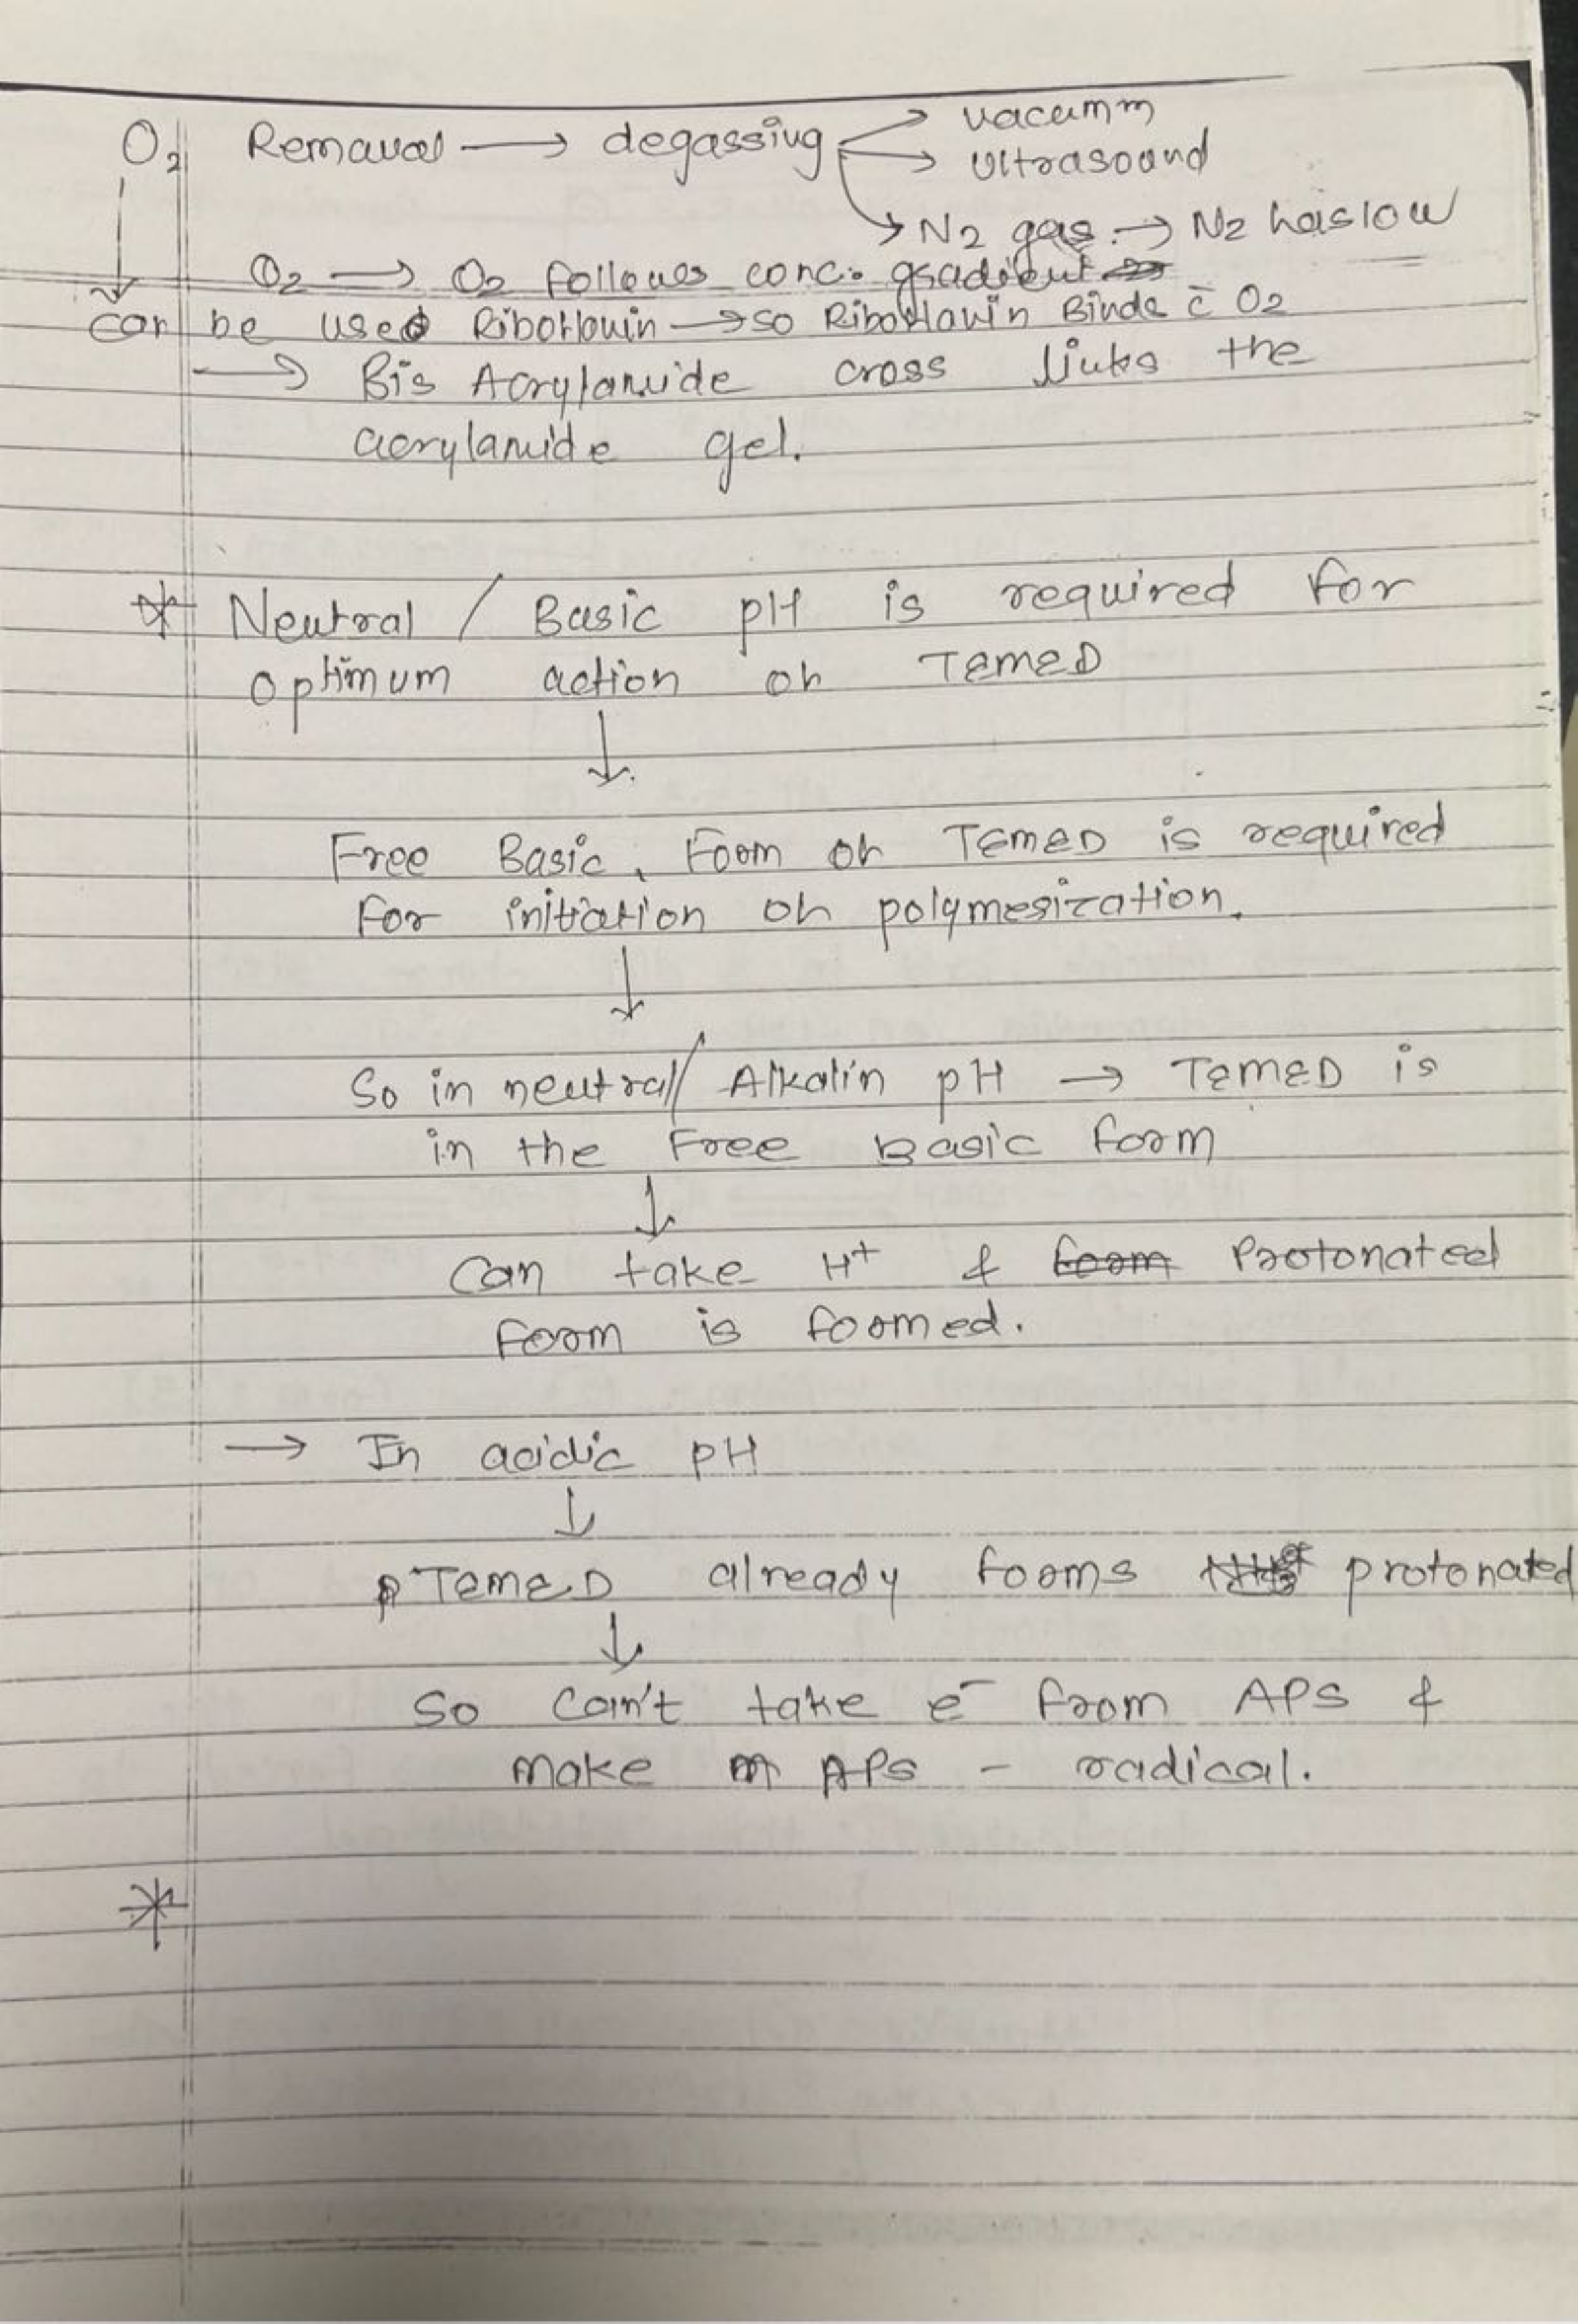 O2 Removal → degassing → vacumm
→ ultrasound
→ N2 gas. → N2 has low
O2 → O2 follows conc. gradient
can be used Riboflavin → so Riboflavin Binds c̄ O2
→ Bis Acrylamide cross links the
acrylamide gel.
* Neutral / Basic pH is required for
optimum action of TEMED
↓
Free Basic. Form of TEMED is required
for initiation of polymerization.
↓
So in neutral/ Alkalin pH → TEMED is
in the Free Basic form
↓
Can take H+ & form Protonated
form is formed.
→ In acidic pH
↓
TEMED already forms protonated
↓
So can't take e- from APS &
make APS - radical.
*